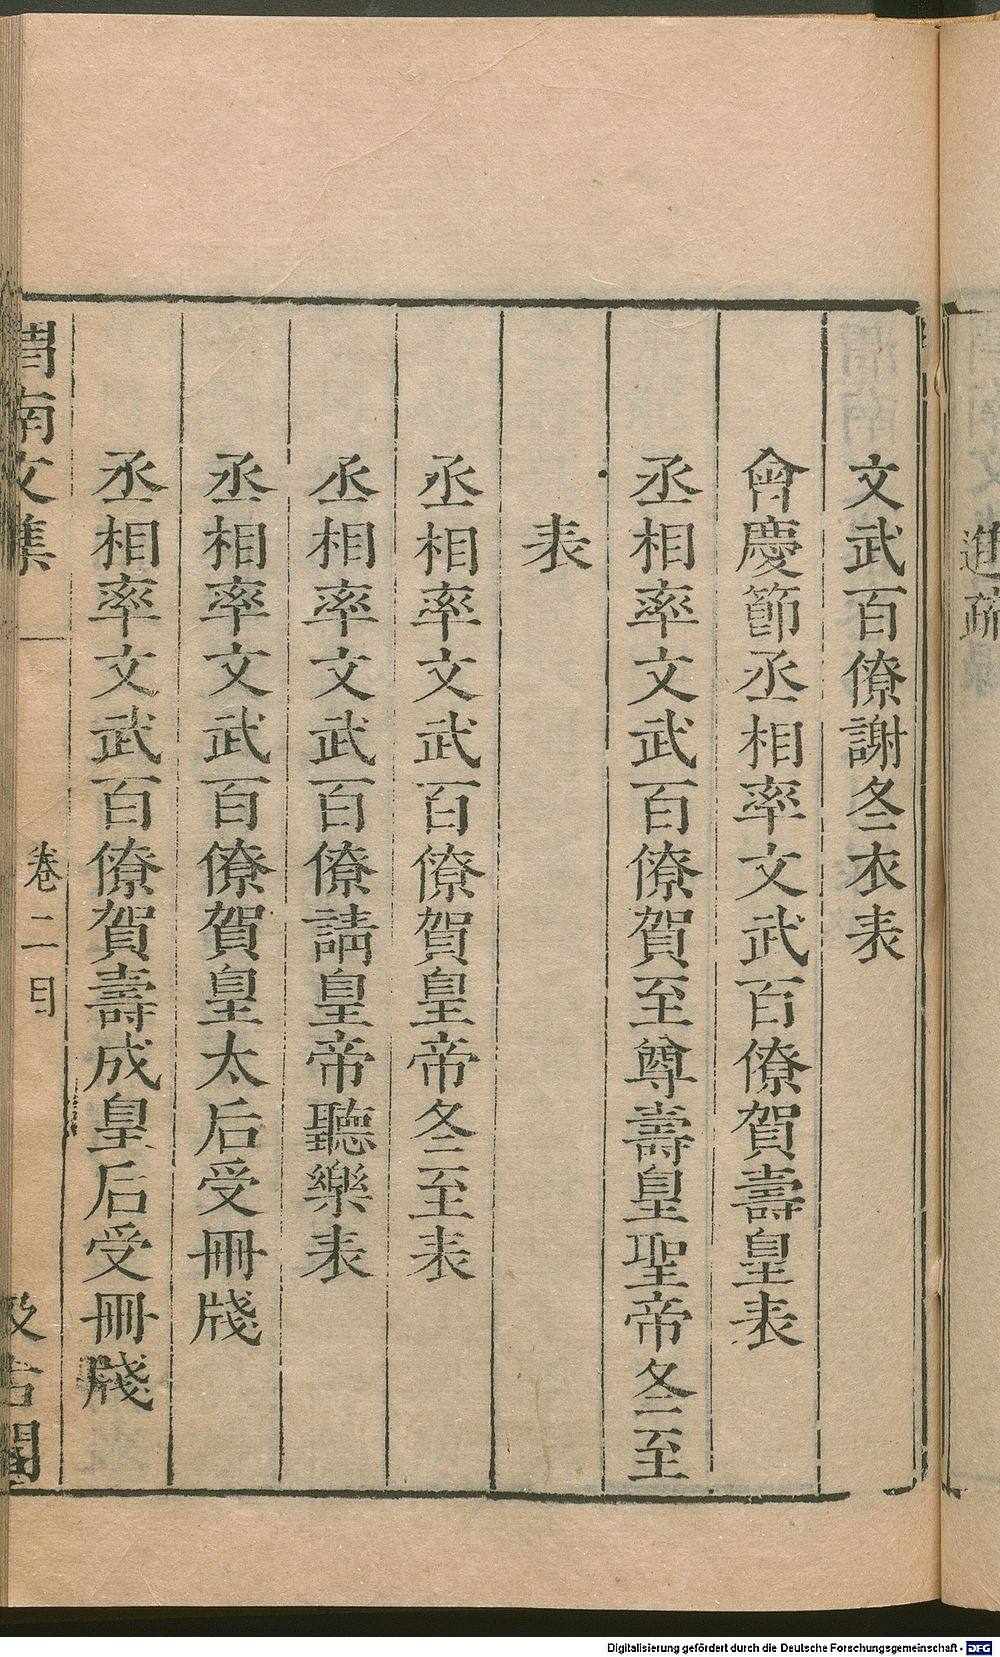 進疏
文武百僚謝冬衣表
會慶節丞相率文武百僚賀壽皇表
丞相率文武百僚賀至尊壽皇聖帝冬至
表
丞相率文武百僚賀皇帝冬至表
丞相率文武百僚請皇帝聽樂表
丞相率文武百僚賀皇太后受冊牋
丞相率文武百僚賀壽成皇后受冊牋
渭南文集 卷二目 汲古閣
Digitalisierung gefördert durch die Deutsche Forschungsgemeinschaft - DFG